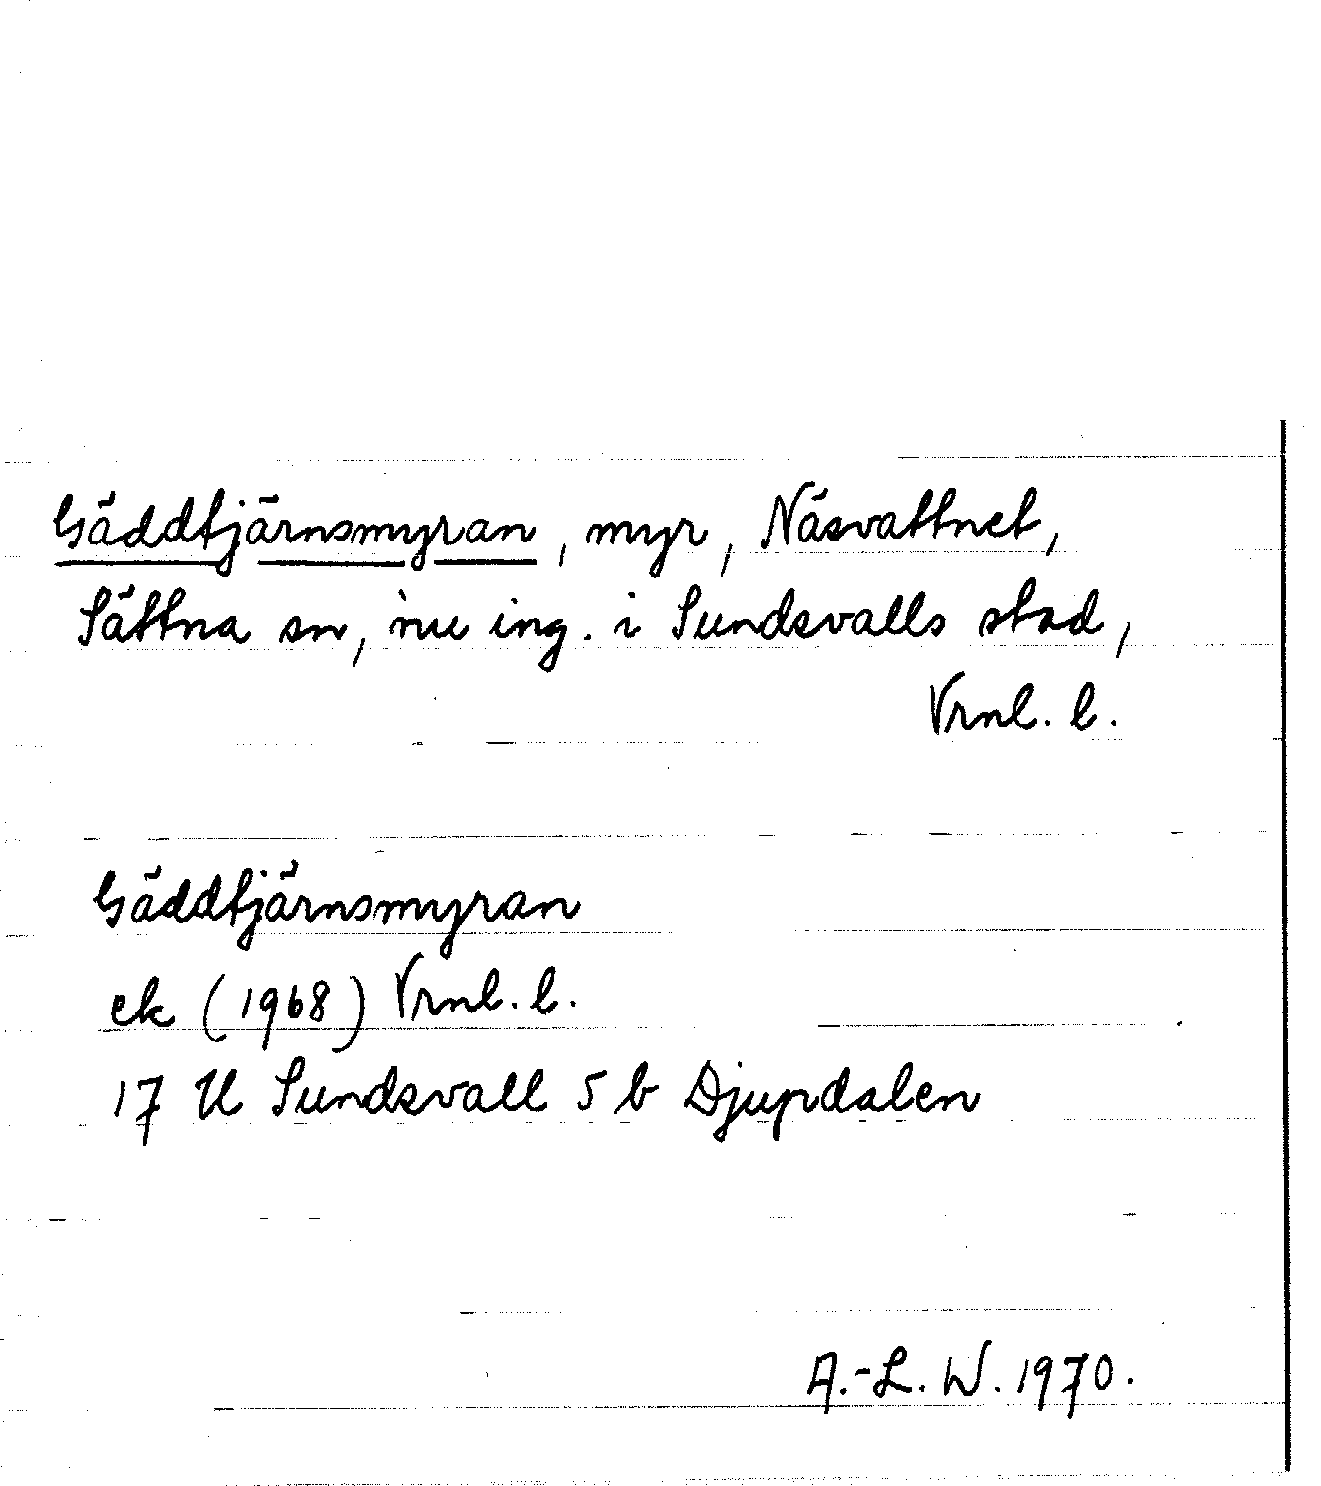 Gäddtjärnsmyran, myr, Näsvattnet,
Sättna sn, nu ing. i Sundsvalls stad,
Vrnl. l.
Gäddtjärnsmyran
ek (1968) Vrnl. l.
17 H Sundsvall 5 b Djupdalen
A.-L. W. 1970.